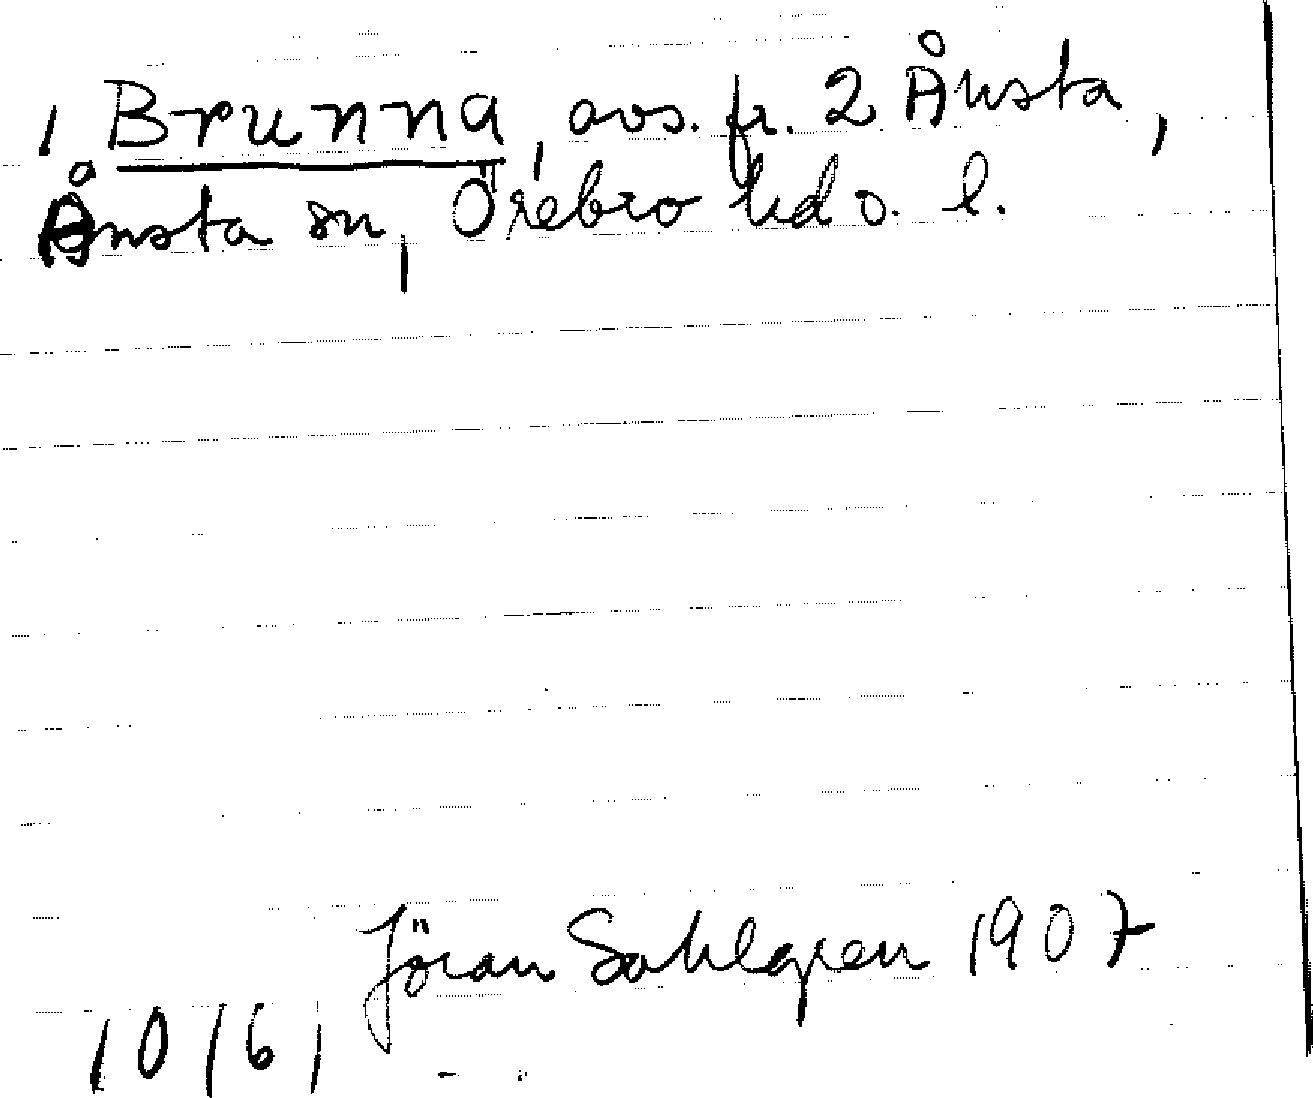 1 Brunna, avs. fr. 2 Ånsta,
Ånsta sn, Örebro hd o. l.
Jöran Sahlgren 1907
10/6